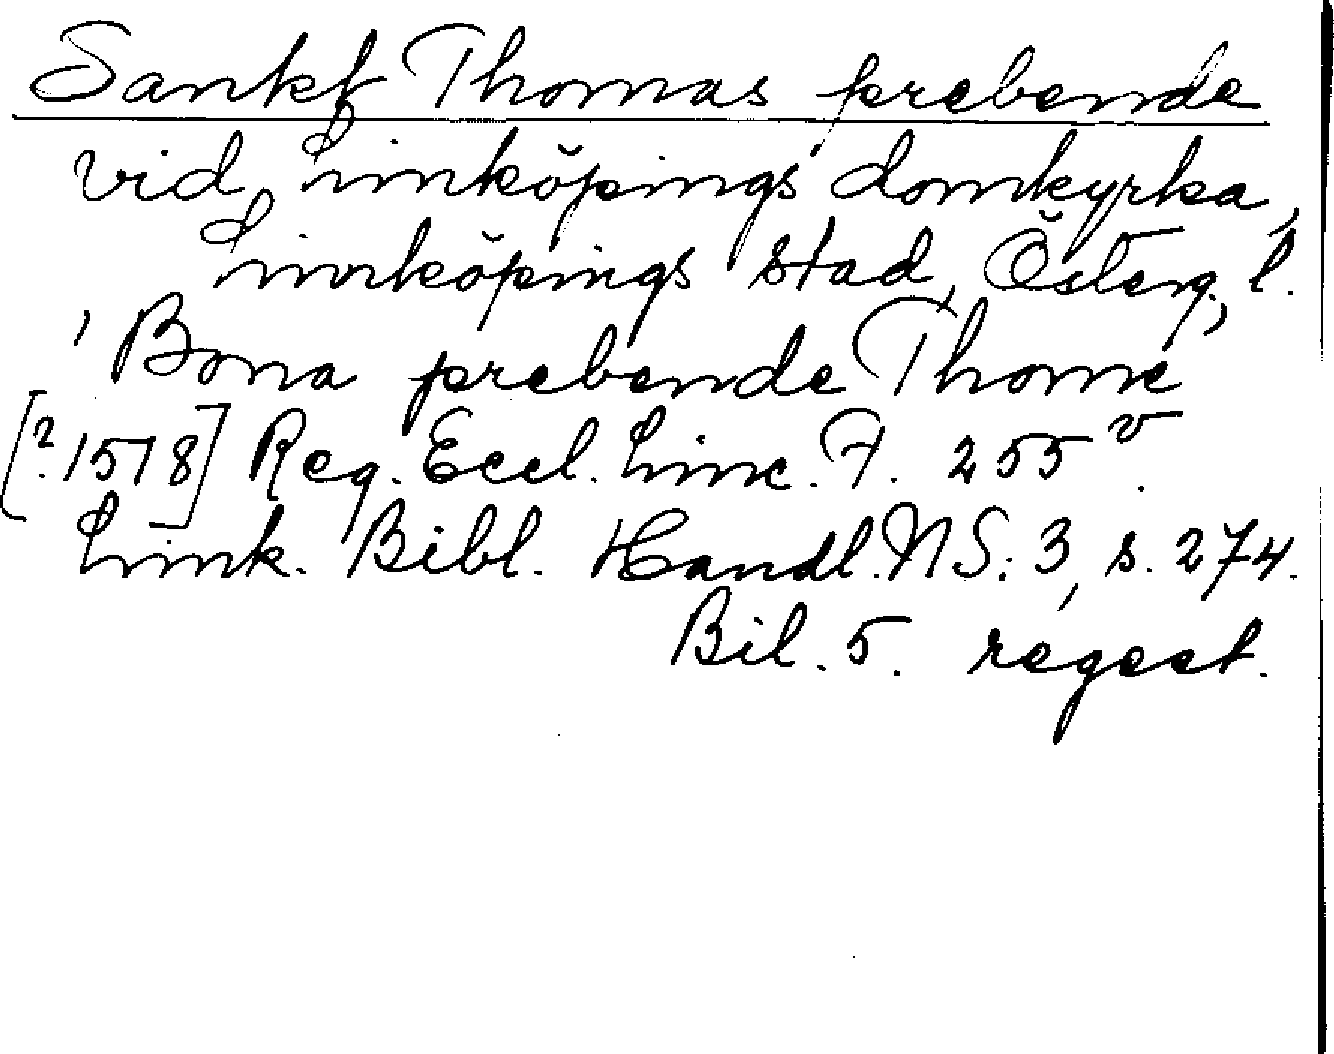 Sankt Thomas prebende
vid Linköpings domkyrka,
Linköpings stad, Österg. l.
, Bona prebende Thome
[? 1578] Reg. Eccl. Linc. F. 255 v.
Link. Bibl. Handl. NS. 3, s. 274.
Bil. 5. regest.